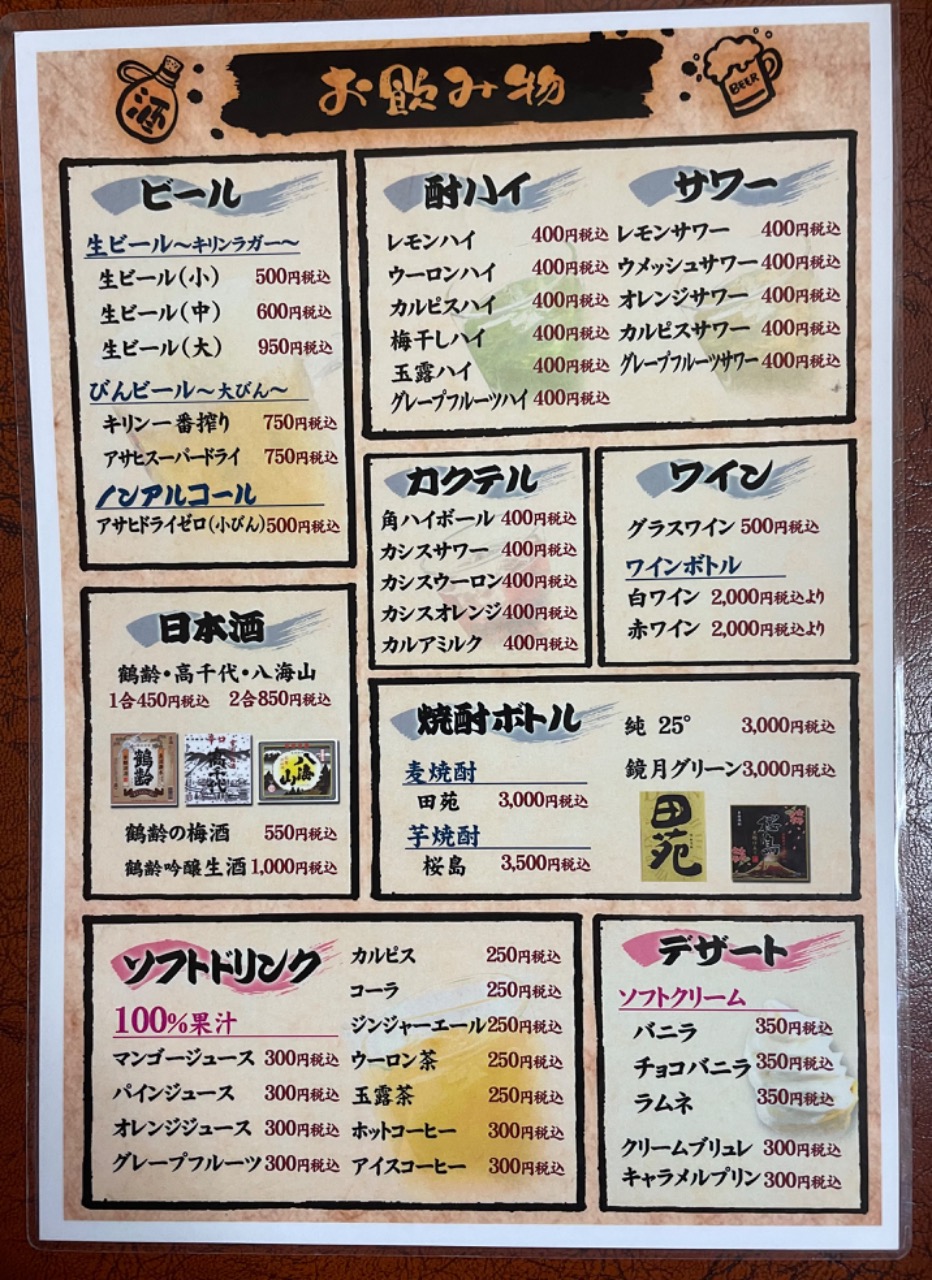 お飲み物
酒
BEER
ビール
生ビール～キリンラガー～
生ビール(小) 500円税込
生ビール(中) 600円税込
生ビール(大) 950円税込
びんビール～大びん～
キリン一番搾り 750円税込
アサヒスーパードライ 750円税込
ノンアルコール
アサヒドライゼロ(小びん)500円税込
酎ハイ
レモンハイ 400円税込
ウーロンハイ 400円税込
カルピスハイ 400円税込
梅干しハイ 400円税込
玉露ハイ 400円税込
グレープフルーツハイ 400円税込
サワー
レモンサワー 400円税込
ウメッシュサワー 400円税込
オレンジサワー 400円税込
カルピスサワー 400円税込
グレープフルーツサワー 400円税込
カクテル
角ハイボール 400円税込
カシスサワー 400円税込
カシスウーロン400円税込
カシスオレンジ400円税込
カルアミルク 400円税込
ワイン
グラスワイン 500円税込
ワインボトル
白ワイン 2,000円税込より
赤ワイン 2,000円税込より
日本酒
鶴齢・高千代・八海山
1合450円税込 2合850円税込
鶴齢
辛口
高千代
八海山
鶴齢の梅酒 550円税込
鶴齢吟醸生酒 1,000円税込
焼酎ボトル
麦焼酎
田苑 3,000円税込
芋焼酎
桜島 3,500円税込
純 25° 3,000円税込
鏡月グリーン3,000円税込
田苑
桜島
ソフトドリンク
100%果汁
マンゴージュース 300円税込
パインジュース 300円税込
オレンジジュース 300円税込
グレープフルーツ 300円税込
カルピス 250円税込
コーラ 250円税込
ジンジャーエール250円税込
ウーロン茶 250円税込
玉露茶 250円税込
ホットコーヒー 300円税込
アイスコーヒー 300円税込
デザート
ソフトクリーム
バニラ 350円税込
チョコバニラ 350円税込
ラムネ 350円税込
クリームブリュレ 300円税込
キャラメルプリン 300円税込